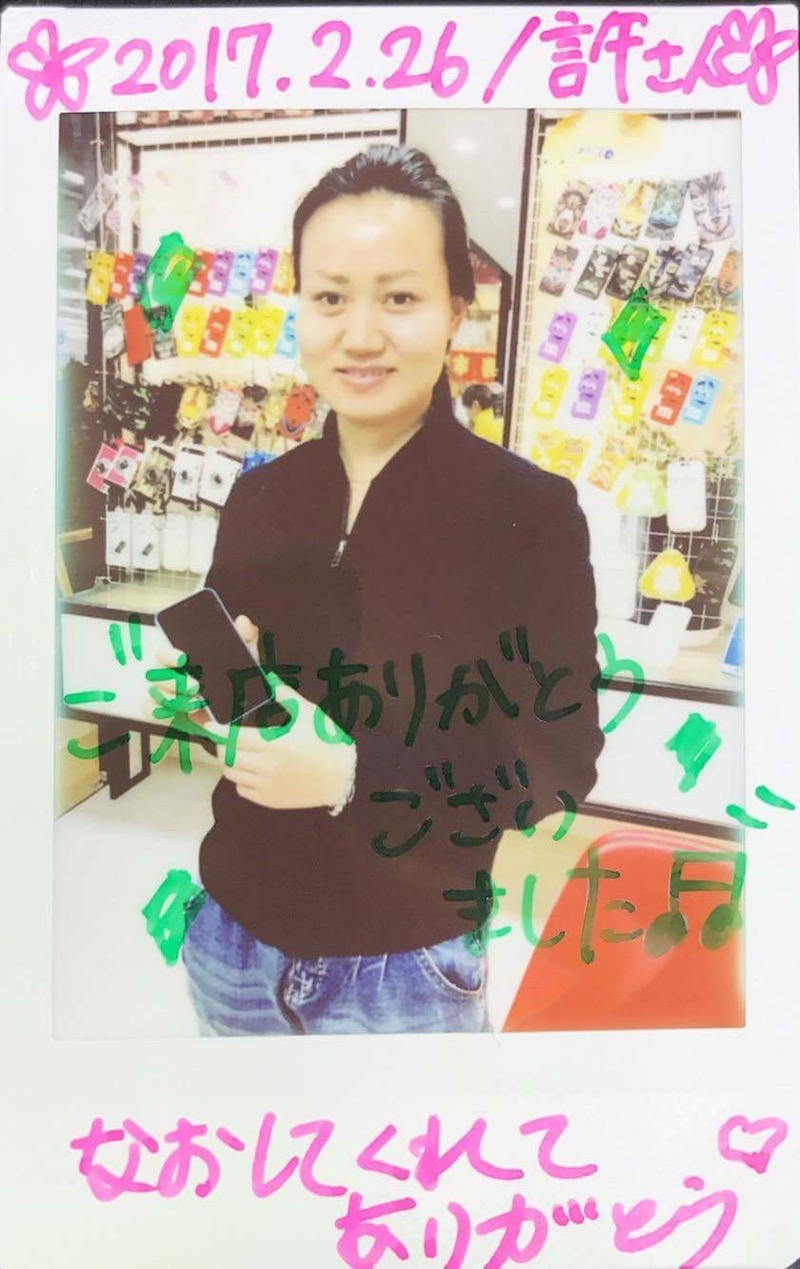 2017.2.26/許さん
ご来店ありがとう
ござい
ました
なおしてくれて
ありがとう